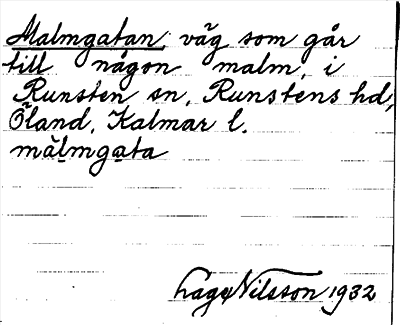 Malmgatan, väg som går
till någon malm, i
Runsten sn, Runstens hd,
Öland, Kalmar l.
màlmgata
Nilsson 1932